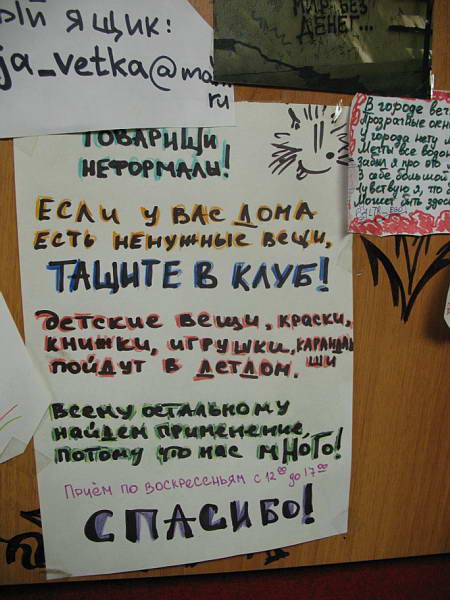 ый ящик:
ja_vetka@ma
ru
МИР БЕЗ
ДЕНЕГ...
В городе веч
Прозрачные окн
У города нету
Мечты все водой
Забыл я про это
В себе большой
Чувствую я, что
Может быть здес
ТОВАРИЩИ
НЕФОРМАЛЫ!
ЕСЛИ У ВАС ДОМА
ЕСТЬ НЕНУЖНЫЕ ВЕЩИ,
ТАЩИТЕ В КЛУБ!
ДЕТСКИЕ ВЕЩИ, КРАСКИ,
КНИЖКИ, ИГРУШКИ, КАРАНДА
ШИ
ПОЙДУТ В ДЕТДОМ.
ВСЕМУ ОСТАЛЬНОМУ
НАЙДЕМ ПРИМЕНЕНИЕ,
ПОТОМУ ЧТО НАС МНОГО!
ПРИЁМ ПО ВОСКРЕСЕНЬЯМ С 12 00 ДО 17 00
СПАСИБО!